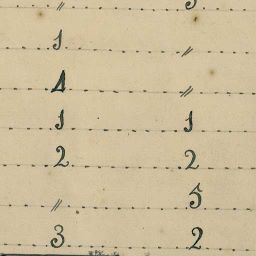 "
1 "
1 "
1 1
2 2
" 5
3 2